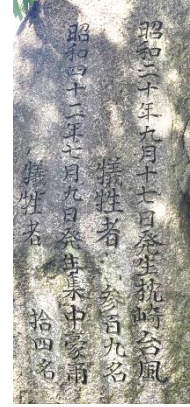 昭和二十年九月十七日発生枕崎台風
犠牲者 参百九名
昭和四十二年七月九日発生集中豪雨
犠牲者 拾四名